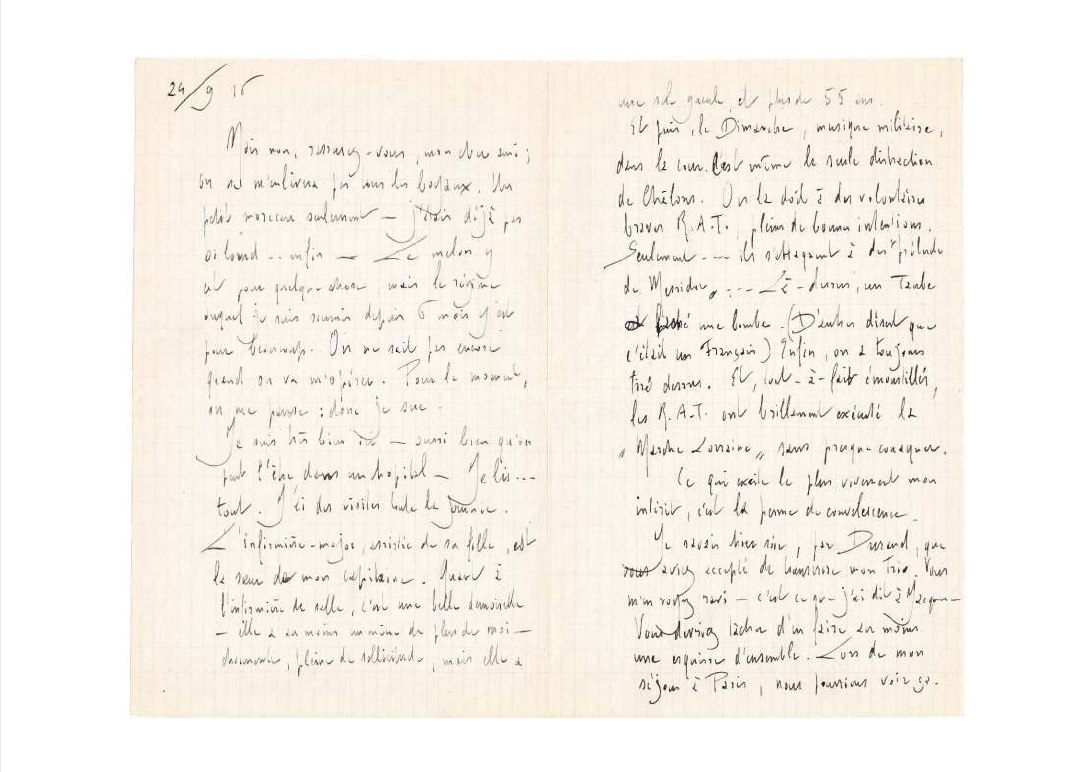 24/9 16
Mais non, rassurez-vous, mon cher ami ;
on ne m'enlèvera pas tous les boyaux. Un
petit morceau seulement — j'étais déjà pas
si lourd... enfin — Le melon y
est pour quelque chose, mais le régime
auquel je suis soumis depuis 6 mois y est
pour beaucoup. On ne sait pas encore
quand on va m'opérer. Pour le moment,
on me : donc je sue.
Je suis très bien ici — aussi bien qu'on
peut l'être dans un hopital — Je lis...
tout. J'ai des visites toute la journée.
L'infirmière-major, assistée de sa fille, est
la sœur de mon capitaine. Quant à
l'infirmière de salle, c'est une belle demoiselle
— elle a au moins un mètre de plus de moi —
, pleine de sollicitude, mais elle a
une sale gueule, et plus de 55 ans.
Et puis, le Dimanche, musique militaire,
dans la cour. C'est même la seule distraction
de Châlons. On la doit à des volontaires
braves R.A.T., pleins de bonnes intentions.
Seulement ---- ils s'attaquent à des "prélude
de Messidor„ ---- Là-dessus, un Taube
a une bombe. (D'autres disent que
c'était un Français) Enfin, on a toujours
tiré dessus. Et, tout-à-fait émoustillés,
les R.A.T. ont brillamment exécuté la
„Marche Lorraine„ sans presque couaquer.
Ce qui excite le plus vivement mon
intérêt, c'est la perme de convalescence.
Je savais hier soir, par Durand, que
vous aviez accepté de transcrire mon Trio. Vous
m'en voyez ravi — c'est ce que j'ai dit à
Vous devriez tâcher d'en faire au moins
une esquisse d'ensemble. Lors de mon
séjour à Paris, nous pourrions voir ça.